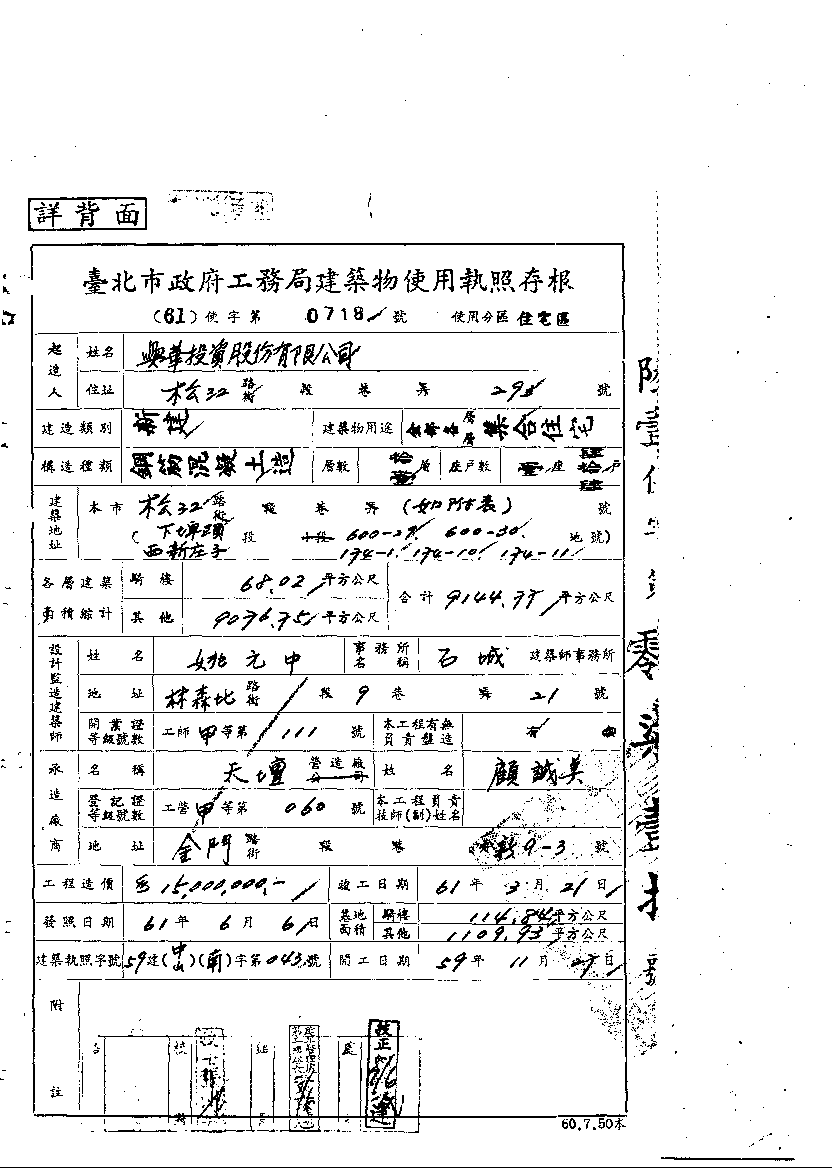 詳背面
臺北市政府工務局建築物使用執照存根
(61)使字第 0718 號 使用分區 住宅區
起造人 姓名 興華投資股份有限公司
住址 松32 路街 段 巷 弄 29 號
建造類別 新建 建築物用途 各層 集合住宅
構造種類 鋼筋混凝土造 層數 拾壹層 座戶數 壹座 肆拾肆戶
建築地址 本市 松32 路街 段 巷 弄 (如附表) 號
(下埤頭 段 小段 600-29 600-30 地號)
西新庄子 174-1 174-10 174-11
各層建築面積綜計 騎樓 68.02 平方公尺 合計 9144.77 平方公尺
其他 9076.75 平方公尺
設計監造建築師 姓名 姚元中 事務所名稱 石城 建築師事務所
地址 林森北 路街 段 9 巷 弄 21 號
開業證等級號數 工師 甲 等第 111 號 本工程有無負責監造 有
承造廠商 名稱 天壇 營造廠 公司 姓名 顧誠美
登記證等級號數 工營 甲 等第 060 號 本工程負責技師(副)姓名
地址 金門 路街 段 巷 9-3 號
工程造價 15,000,000.- 竣工日期 61 年 3 月 21 日
發照日期 61 年 6 月 6 日 基地面積 騎樓 114.84 平方公尺
其他 1109.93 平方公尺
建築執照字號 59建(中山)(南)字第043號 開工日期 59 年 11 月 27 日
附註
校正
60.7.50本